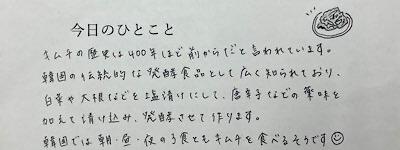 今日のひとこと
キムチの歴史は400年ほど前からだと言われています。
韓国の伝統的な発酵食品として広く知られており、
白菜や大根などを塩漬けにして、唐辛子などの薬味を
加えて漬け込み、発酵させて作ります。
韓国では朝・昼・夜の3食ともキムチを食べるそうです